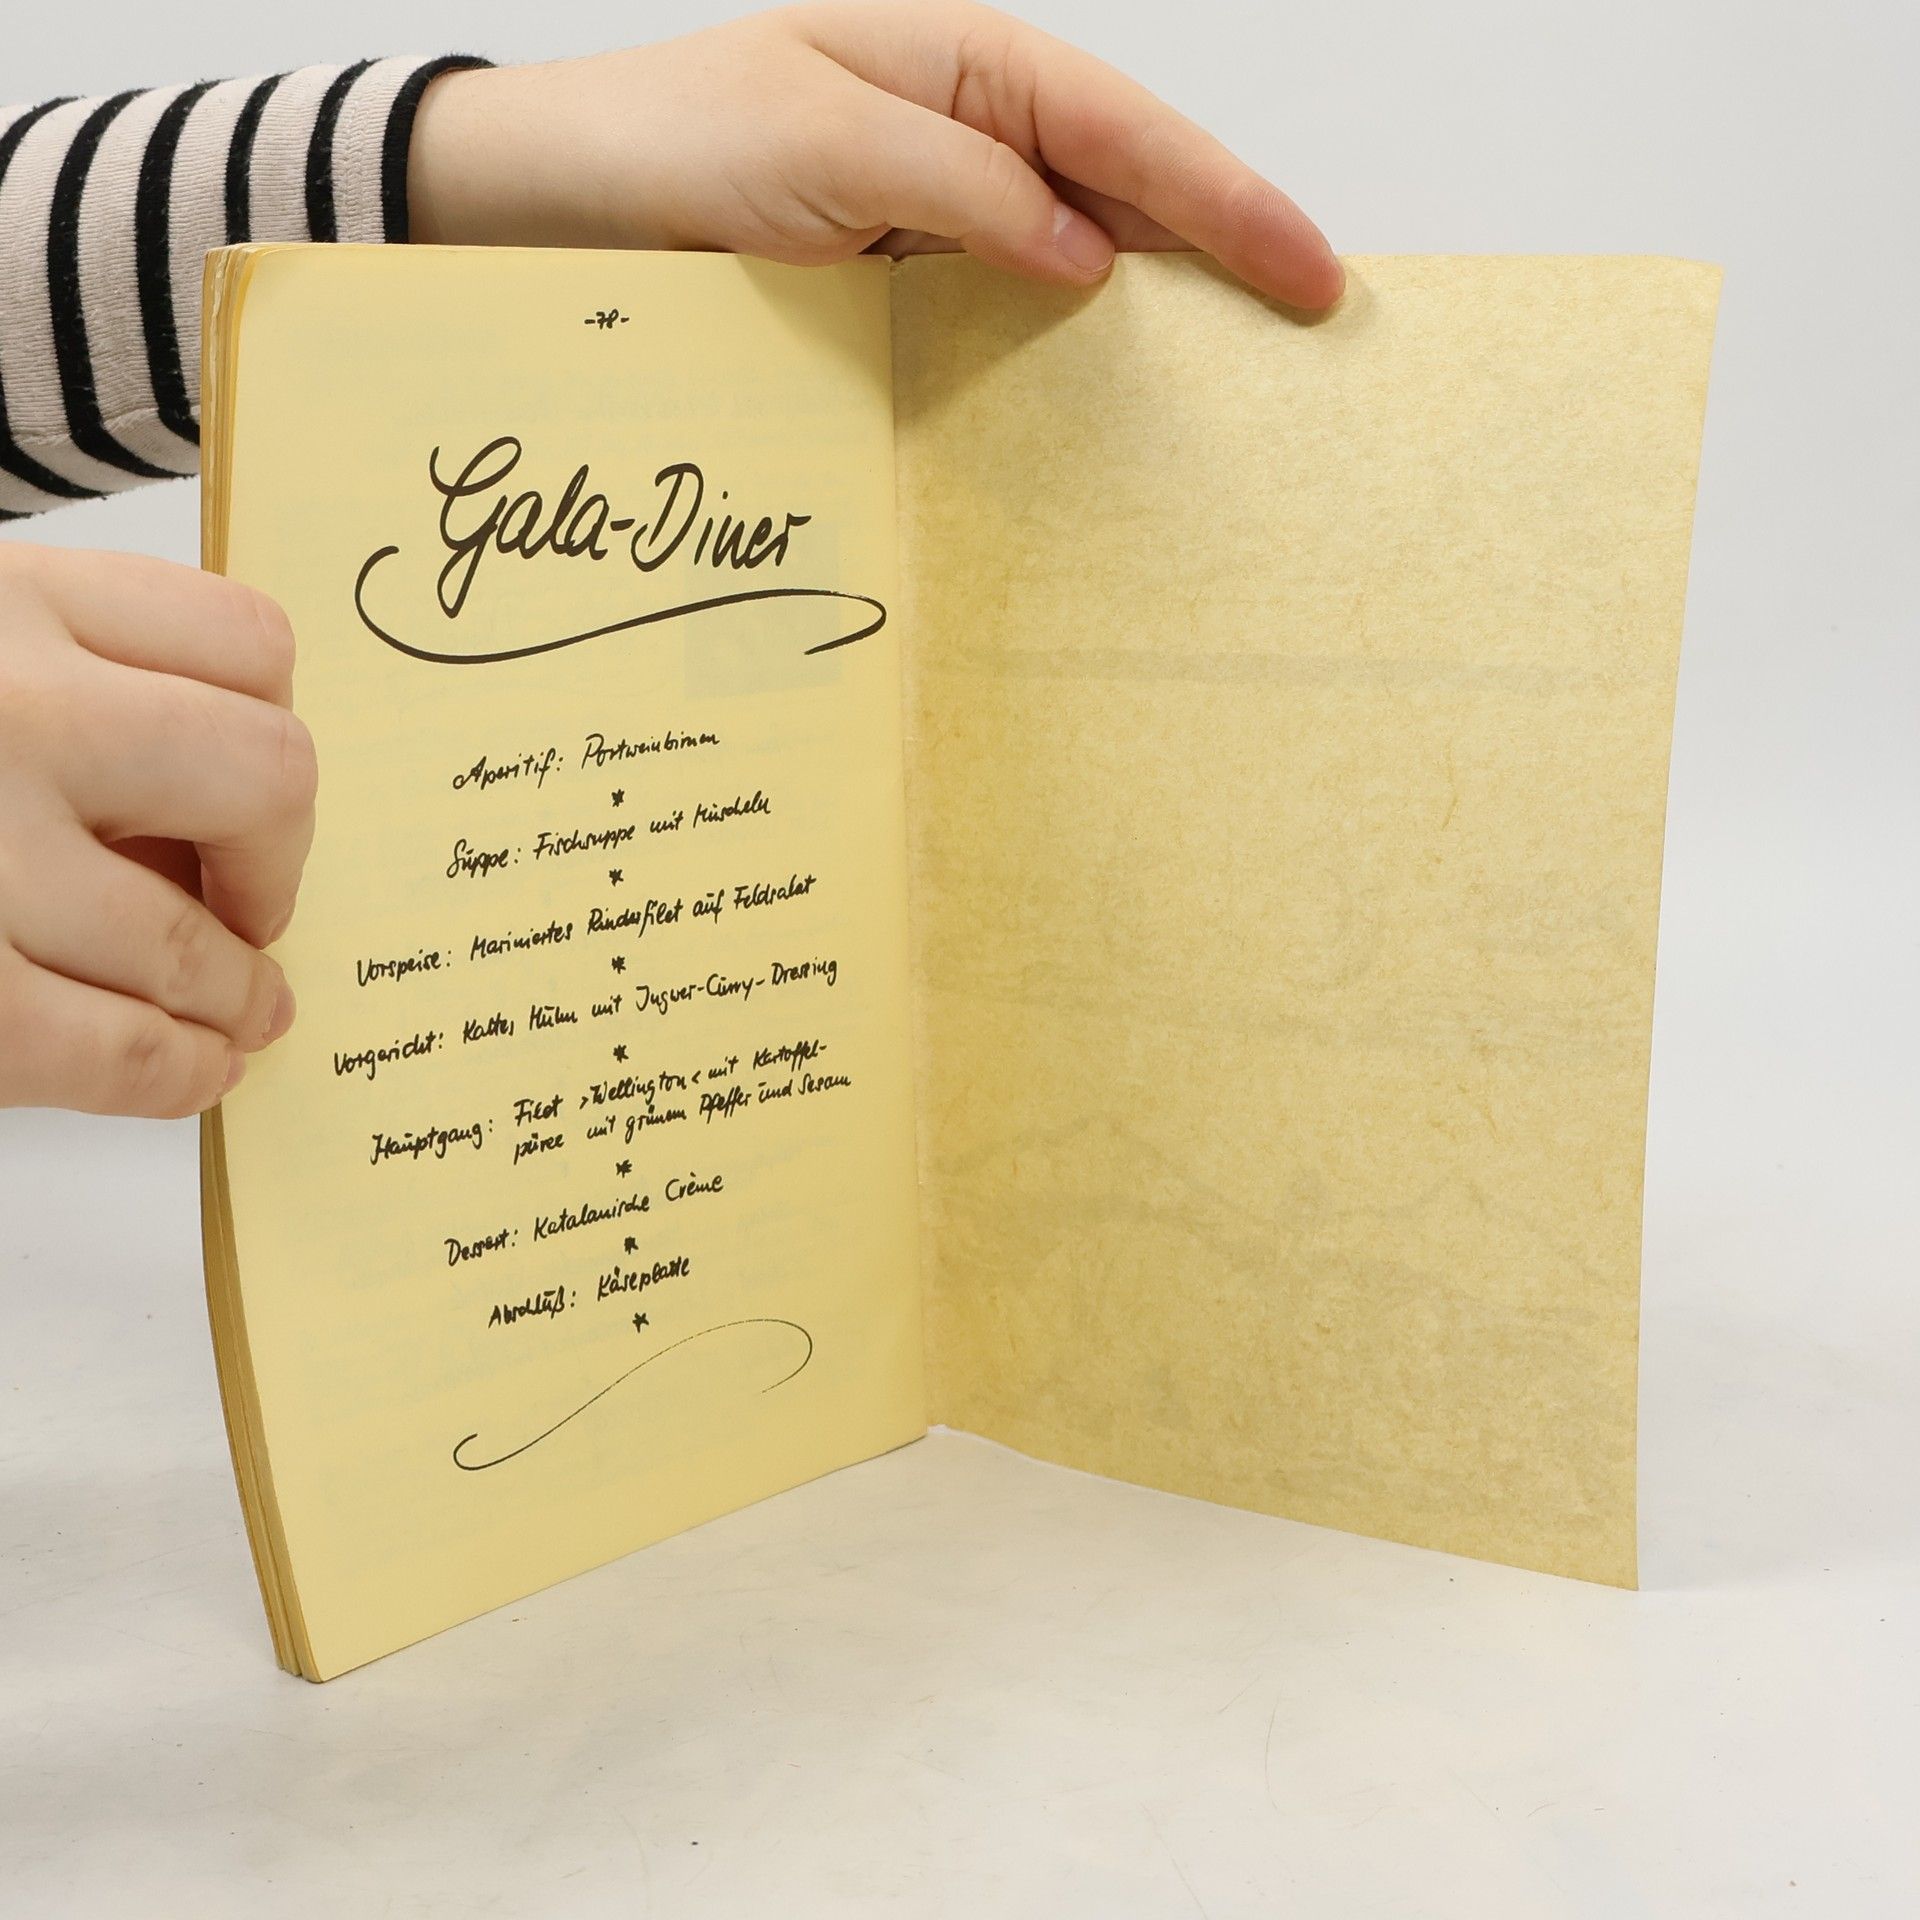 -78-
Gala-Diner
Aperitif: Portweinbirnen
*
Suppe: Fischsuppe mit Muscheln
*
Vorspeise: Mariniertes Rinderfilet auf Feldsalat
*
Vorgericht: Kaltes Huhn mit Ingwer-Curry-Dressing
*
Hauptgang: Filet >Wellington< mit Kartoffel-
püree mit grünem Pfeffer und Sesam
*
Dessert: Katalanische Crème
*
Abschluß: Käseplatte
*